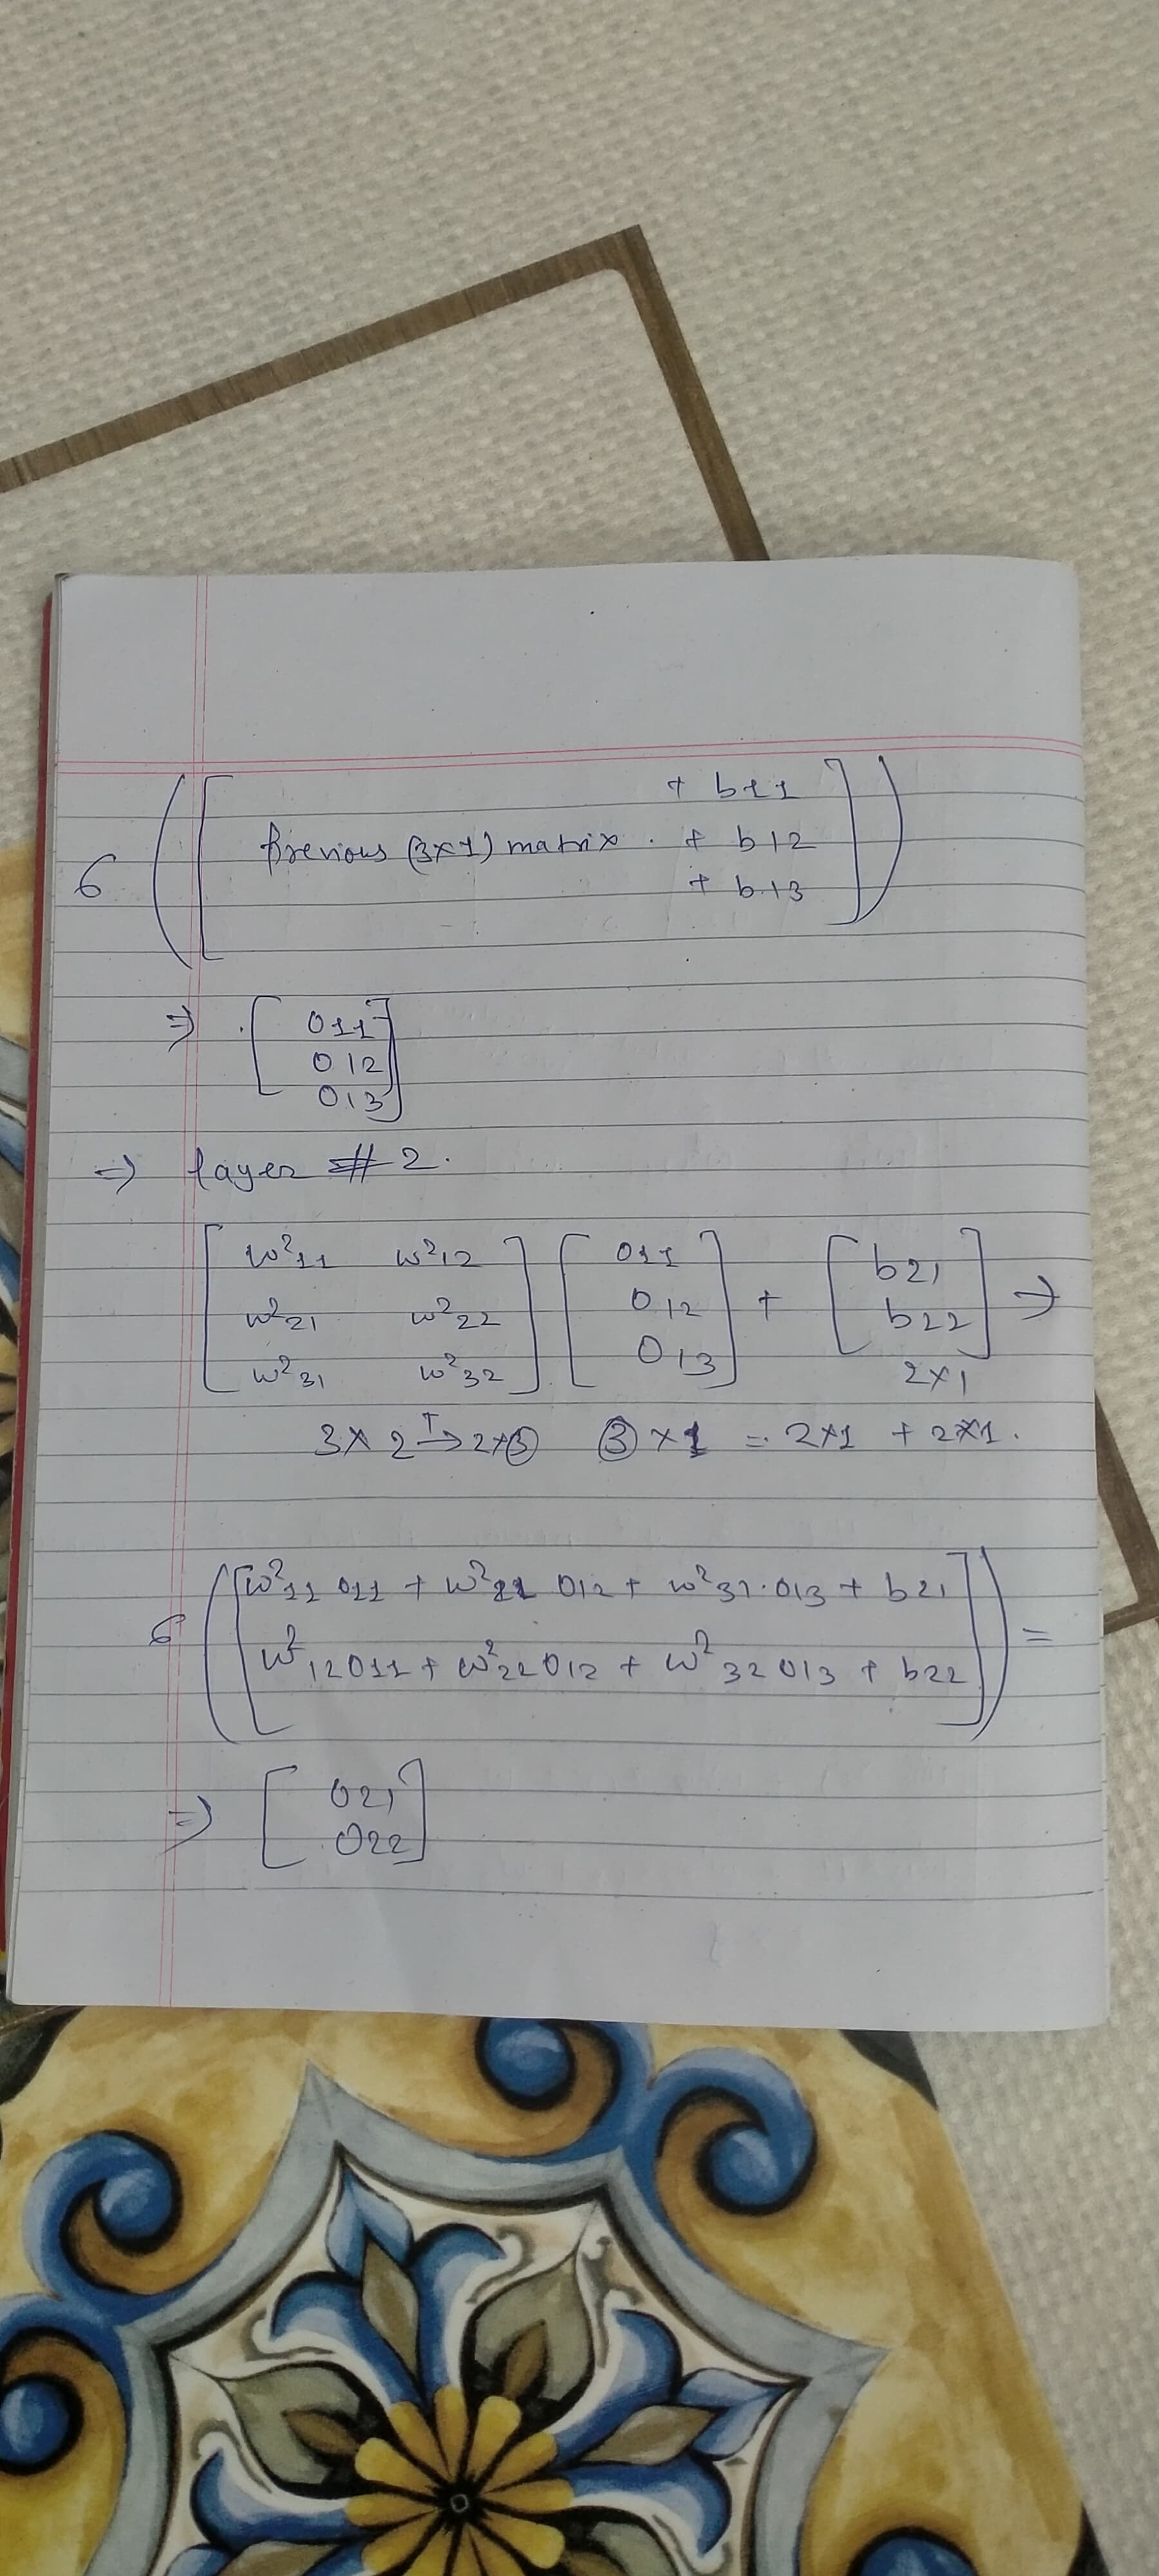 + b11
σ ([ previous (3×1) matrix. + b12 ])
+ b13
⇒ [ O11
O12
O13 ]
⇒ layer # 2.
[ w²11 w²12 ] [ O11 ] + [ b21 ] ⇒
w²21 w²22 O12 b22
w²31 w²32 O13 2×1
3×2 T→ 2×3 3×1 = 2×1 + 2×1.
σ ([ w²11 O11 + w²21 O12 + w²31.O13 + b21
w²12 O11 + w²22 O12 + w²32 O13 + b22 ]) =
⇒ [ O21
O22 ]